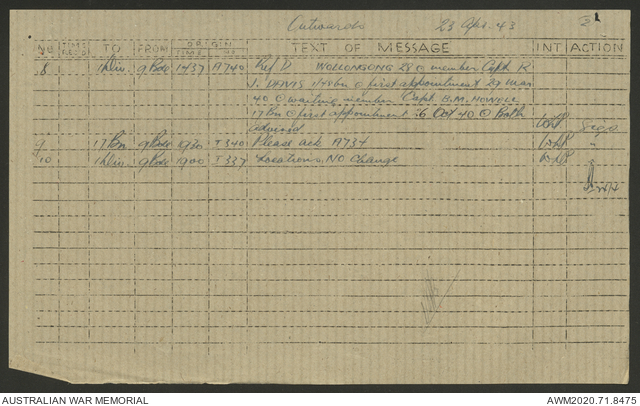 Outwards 23 Apr. 43 2
No TIME RECD TO FROM ORIGIN TIME NO TEXT OF MESSAGE INT ACTION
8 1 Div. 9 Bde 1437 A740 Ref D WOLLONGONG 28 @ member Capt R
J. DAVIS 1/45 bn @ first appointment 29 Mar
40 @ waiting member Capt. B.M. HOWELL
17 Bn @ first appointment 6 Oct 40 @ Both
advised Sigs
9 17 Bn 9 Bde 1930 J340 Please ack A734 "
10 1 Div. 9 Bde 1900 J337 Locations, NO Change "
AUSTRALIAN WAR MEMORIAL AWM2020.71.8475